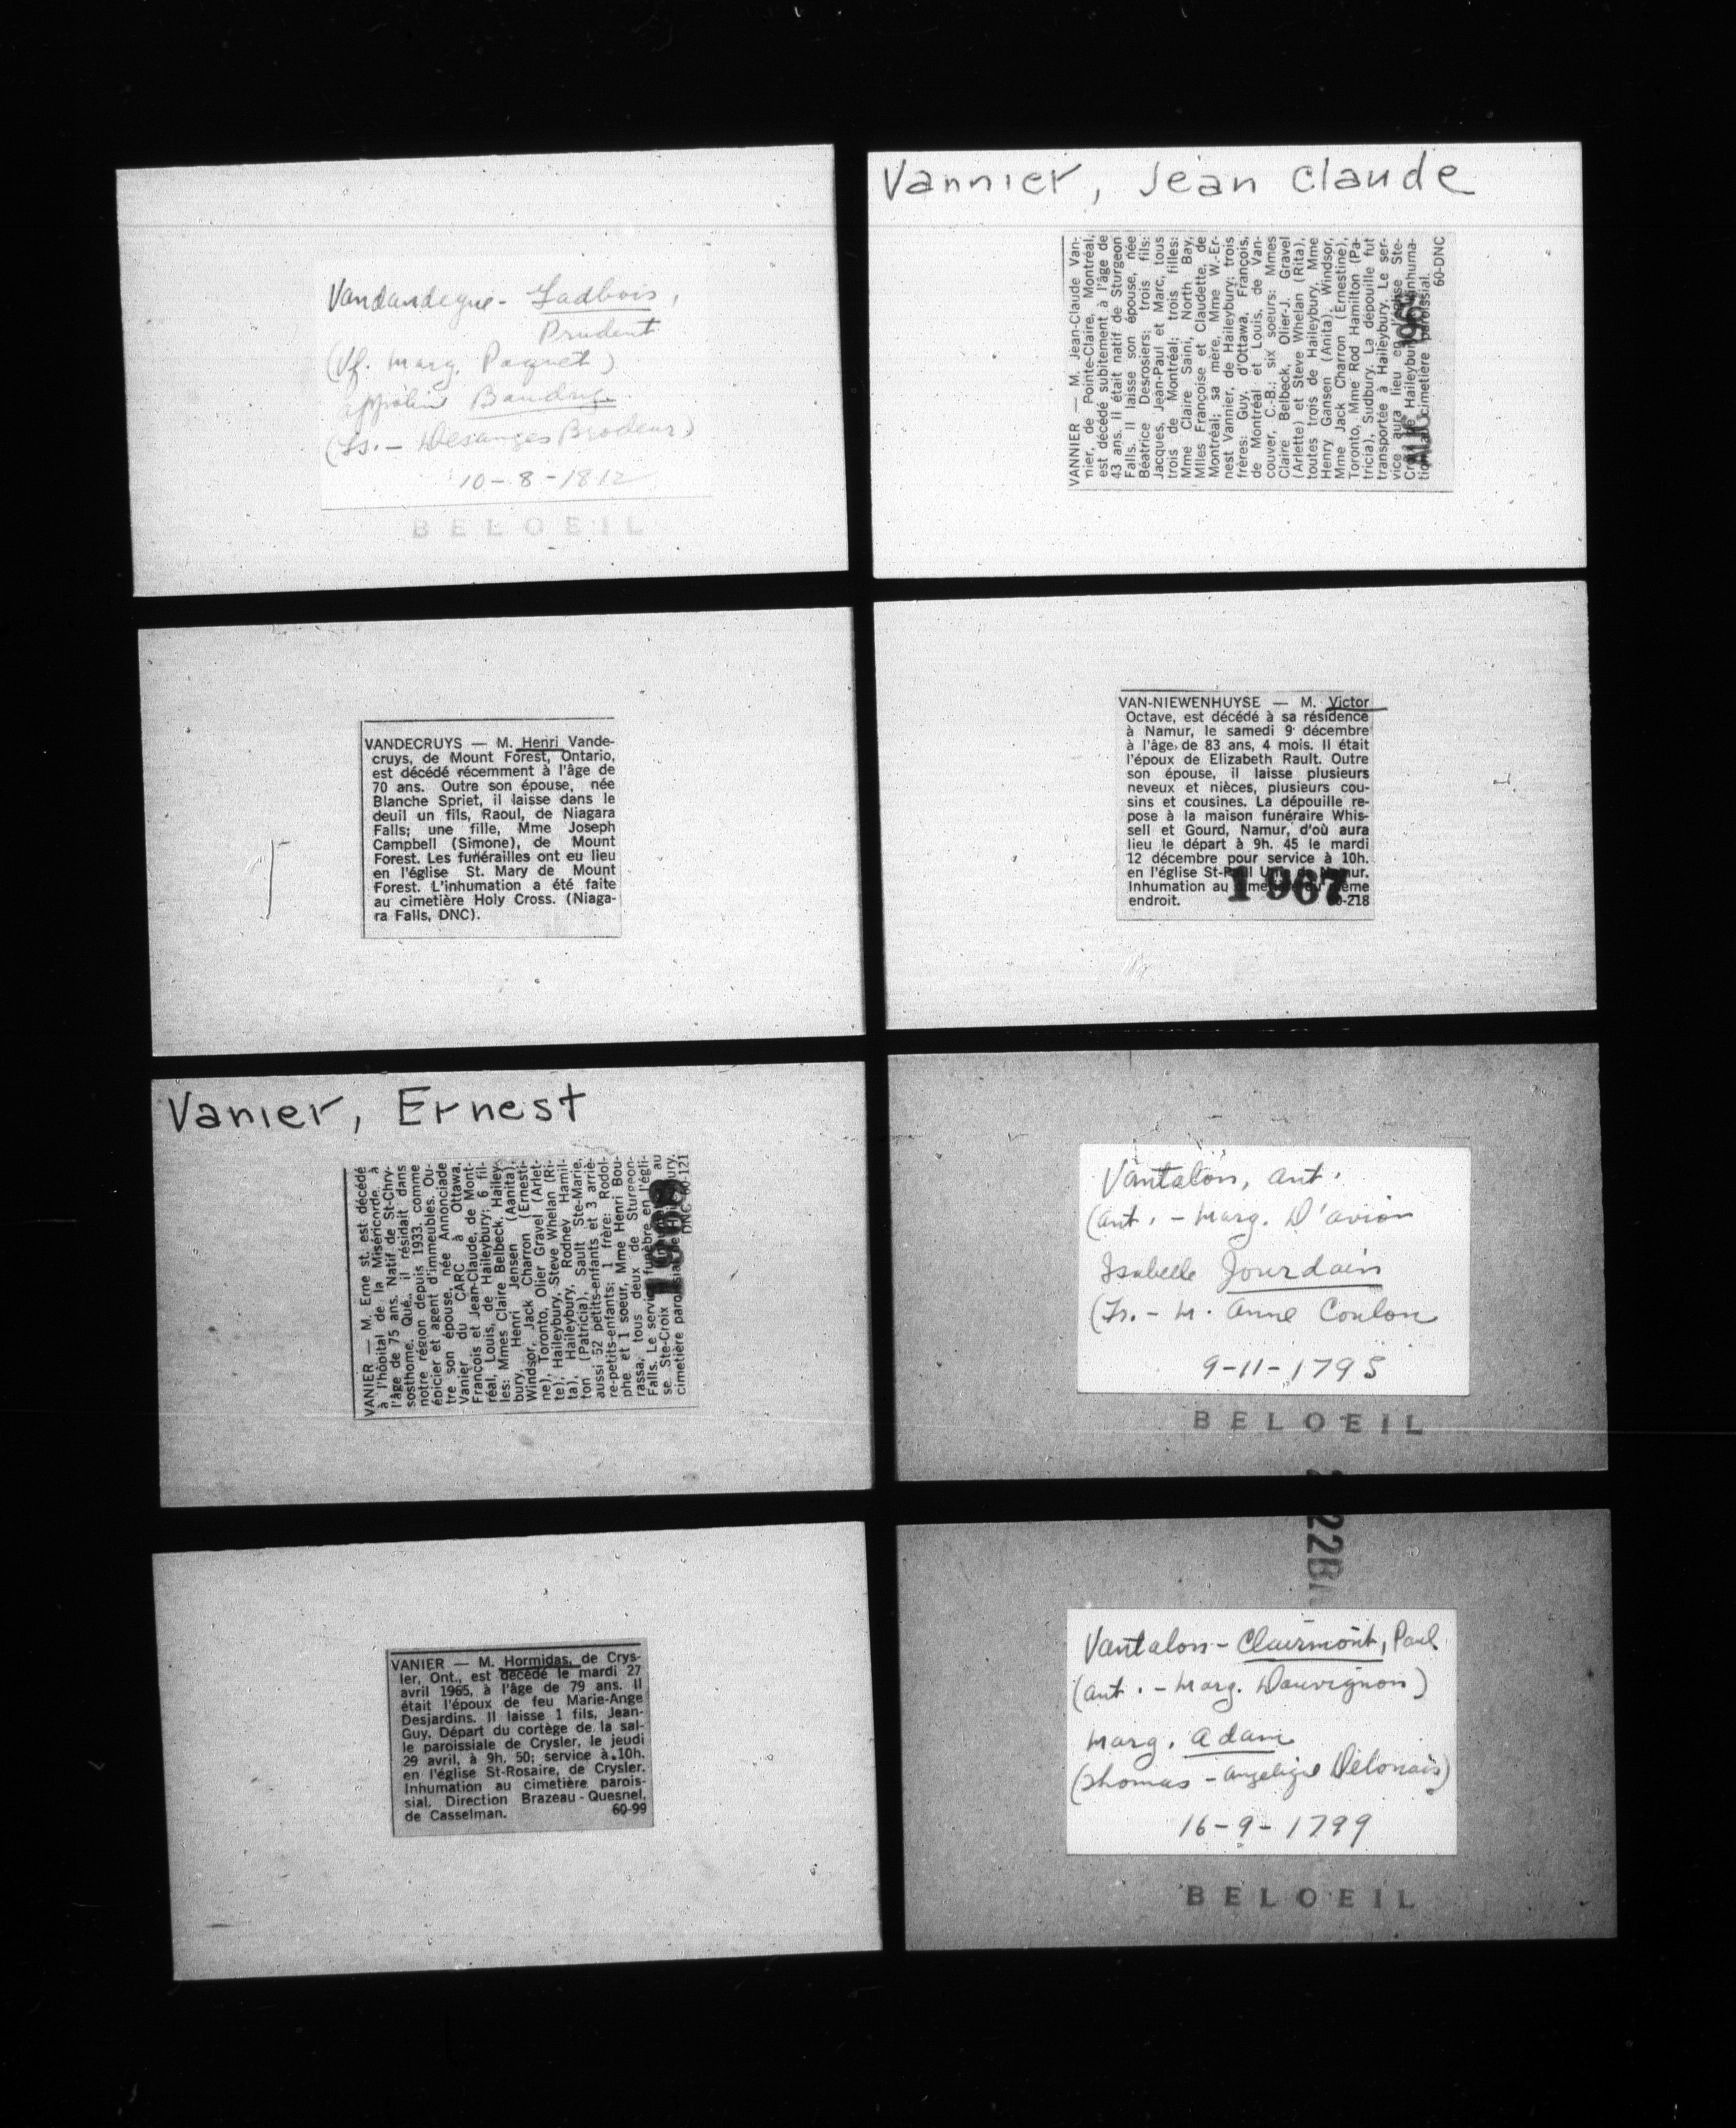 Vandandegue - Gadbois,
Prudent
(Vf. Marg. Paquet)
Baudry
(Ls. - Desanges Brodeur)
10-8-1812
BELOEIL
VANDECRUYS — M. Henri Vande-
cruys, de Mount Forest, Ontario,
est décédé récemment à l'âge de
70 ans. Outre son épouse, née
Blanche Spriet, il laisse dans le
deuil un fils, Raoul, de Niagara
Falls; une fille, Mme Joseph
Campbell (Simone), de Mount
Forest. Les funérailles ont eu lieu
en l'église St. Mary de Mount
Forest. L'inhumation a été faite
au cimetière Holy Cross. (Niaga-
ra Falls, DNC).
Vanier, Ernest
VANIER — M. Erne st, est décédé
à l'hôpital de la Miséricorde, à
l'âge de 75 ans. Natif de St-Chry-
sosthome, Qué., il résidait dans
notre région depuis 1933, comme
épicier et agent d'immeubles. Ou-
tre son épouse, née Annonciade
Vanier du CARC à Ottawa,
François et Jean-Claude, de Mont-
réal, Louis, de Haileybury; 6 fil-
les: Mmes Claire Belbeck, Hailey-
bury, Henri Jensen (Aanita),
Windsor, Jack Charron (Ernesti-
ne), Toronto, Olier Gravel (Arlet-
te), Haileybury, Steve Whelan (Ri-
ta), Haileybury, Rodney Hamil-
ton (Patricia), Sault Ste-Marie,
aussi 52 petits-enfants et 3 arriè-
re-petits-enfants; 1 frère: Rodol-
phe et 1 soeur, Mme Henri Bou-
rassa, tous deux de Sturgeon-
Falls. Le service funèbre en l'égli-
se Ste-Croix au
cimetière paroissial
DNC 60-121
VANIER — M. Hormidas, de Crys-
ler, Ont., est décédé le mardi 27
avril 1965, à l'âge de 79 ans. Il
était l'époux de feu Marie-Ange
Desjardins. Il laisse 1 fils, Jean-
Guy. Départ du cortège de la sal-
le paroissiale de Crysler, le jeudi
29 avril, à 9h. 50; service à 10h.
en l'église St-Rosaire, de Crysler.
Inhumation au cimetière parois-
sial. Direction Brazeau - Quesnel,
de Casselman. 60-99
Vannier, Jean Claude
VANNIER — M. Jean-Claude Van-
nier, de Pointe-Claire, Montréal,
est décédé subitement à l'âge de
43 ans. Il était natif de Sturgeon
Falls. Il laisse son épouse, née
Béatrice Desrosiers; trois fils:
Jacques, Jean-Paul et Marc, tous
trois de Montréal; trois filles:
Mme Claire Saini, North Bay,
Mlles Françoise et Claudette, de
Montréal; sa mère, Mme W.-Er-
nest Vannier, de Haileybury; trois
frères: Guy, d'Ottawa, François,
de Montréal et Louis, de Van-
couver, C.-B.; six soeurs: Mmes
Claire Belbeck, Olier-J. Gravel
(Arlette) et Steve Whelan (Rita),
toutes trois de Haileybury, Mme
Henry Gansen (Anita), Windsor,
Mme Jack Charron (Ernestine),
Toronto, Mme Rod Hamilton (Pa-
tricia), Sudbury. La dépouille fut
transportée à Haileybury. Le ser-
vice aura lieu en l'église Ste-
Croix de Haileybury. L'inhuma-
tion au cimetière paroissial.
60-DNC
VAN-NIEWENHUYSE — M. Victor
Octave, est décédé à sa résidence
à Namur, le samedi 9 décembre
à l'âge de 83 ans, 4 mois. Il était
l'époux de Elizabeth Rault. Outre
son épouse, il laisse plusieurs
neveux et nièces, plusieurs cou-
sins et cousines. La dépouille re-
pose à la maison funéraire Whis-
sell et Gourd, Namur, d'où aura
lieu le départ à 9h. 45 le mardi
12 décembre pour service à 10h.
en l'église St-Paul Unie de Namur.
Inhumation au cimetière du même
endroit. 60-218
1967
Vantalon, Ant.
(Ant. - Marg. D'avion
Isabelle Jourdain
(Fs. - M. Anne Coulon
9-11-1795
BELOEIL
Vantalon - Clairmont, Paul
(Ant. - Marg. Dauvignon)
Marg. Adam
(Thomas - Angelique Delonais)
16-9-1799
BELOEIL